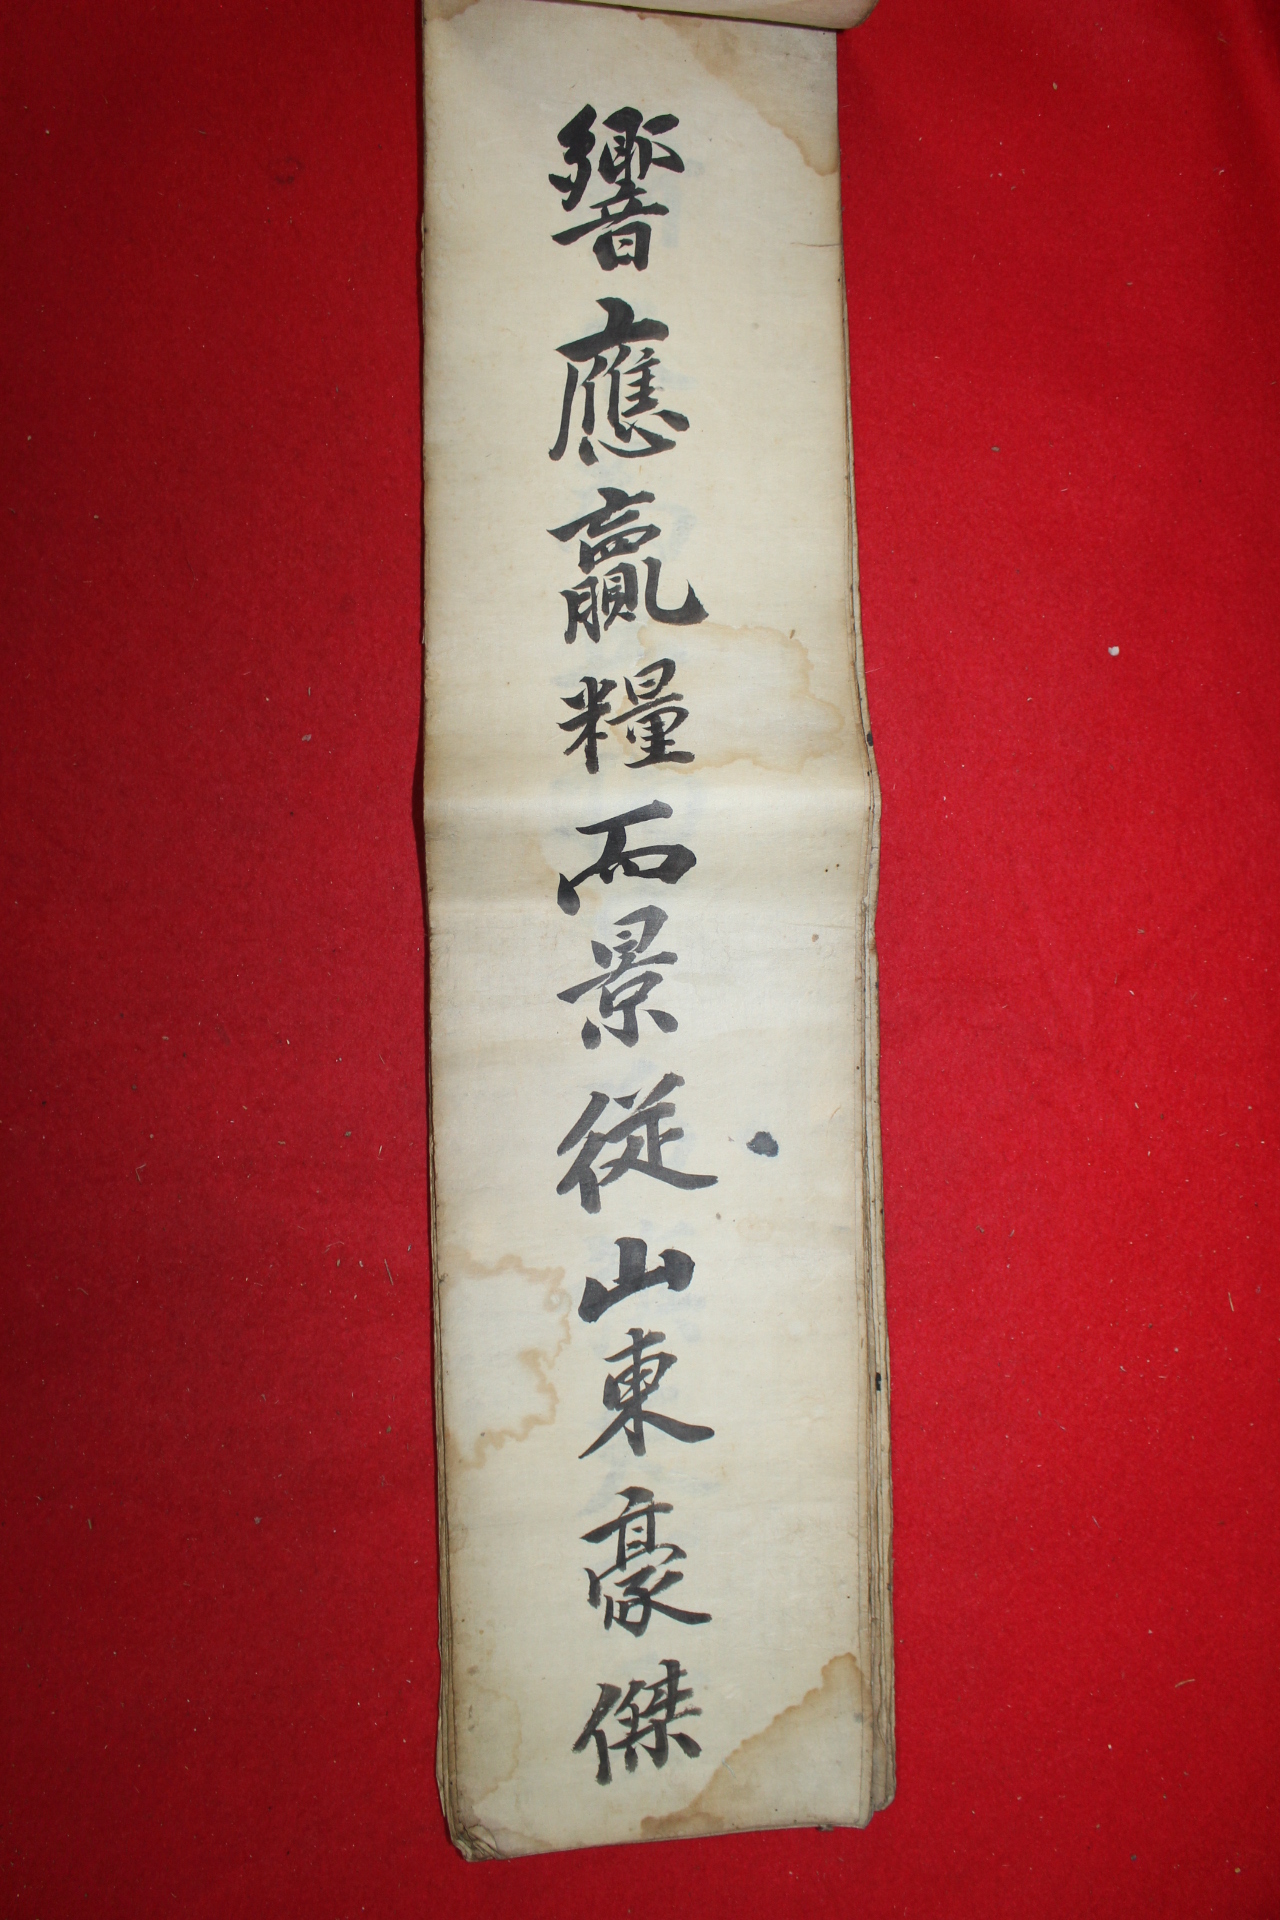 響應贏糧而景從山東豪傑